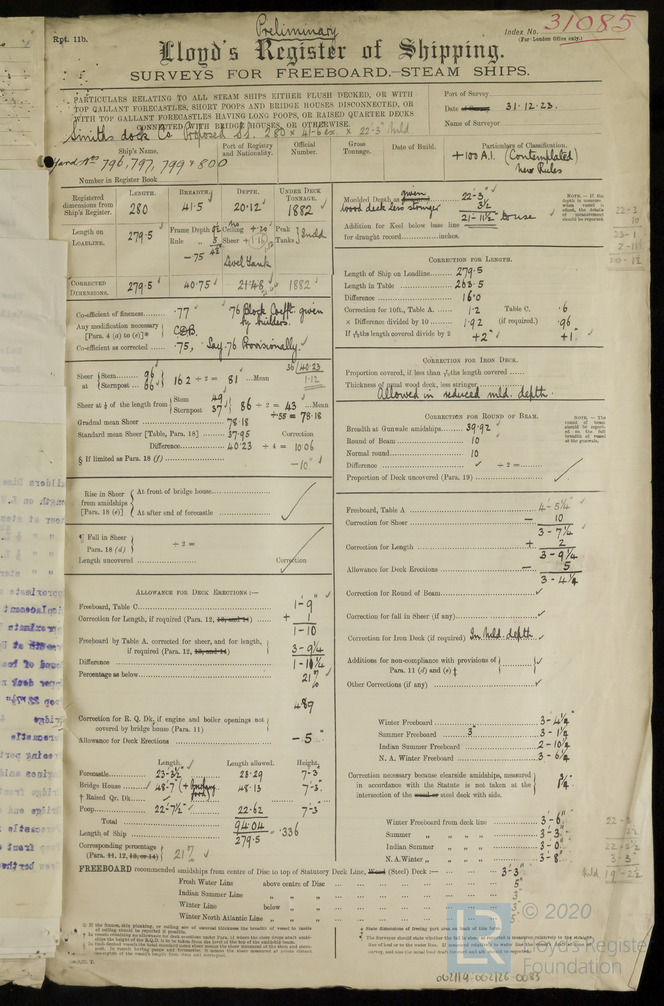 Rpt. 11b.
Preliminary
Index No. 31085
(For London Office only.)
Lloyd's Register of Shipping.
SURVEYS FOR FREEBOARD.—STEAM SHIPS.
PARTICULARS RELATING TO ALL STEAM SHIPS EITHER FLUSH DECKED, OR WITH
TOP GALLANT FORECASTLES, SHORT POOPS AND BRIDGE HOUSES DISCONNECTED, OR
WITH TOP GALLANT FORECASTLES HAVING LONG POOPS, OR RAISED QUARTER DECKS
CONNECTED WITH BRIDGE HOUSES, OR OTHERWISE.
Port of Survey
Date of Survey 31.12.23.
Name of Surveyor
Smiths dock Co Proposed S.S. 280 x 41-6 ex. x 22-3" Mld
Ship's Name.
Port of Registry and Nationality.
Official Number.
Gross Tonnage.
Date of Build.
Particulars of Classification.
Yard Nos 796, 797, 799 & 800
+100 A.1. (Contemplated)
New Rules
Number in Register Book
LENGTH. BREADTH. DEPTH. UNDER DECK TONNAGE.
Registered dimensions from Ship's Register. 280 41.5 20.12 1882
Length on LOADLINE. 279.5
Frame Depth
Rule
-.75
Ceiling
Sheer
Peak Tanks
CORRECTED DIMENSIONS. 279.5 40.75 21.48 1882
Moulded Depth as given 22-3"
wood deck less stringer 3½
21-11½
Addition for Keel below base line for draught record..........inches.
NOTE.—If the depth is measured when vessel is afloat, the details of measurement should be reported.
CORRECTION FOR LENGTH.
Length of Ship on Loadline 279.5
Length in Table 263.5
Difference 16.0
Correction for 10ft., Table A. 1.2 Table C. .6
× Difference divided by 10 1.92 (if required.) .96
If 6/10ths length covered divide by 2 +2" +1"
Co-efficient of fineness .77 .76 Block Coefft. given by builders.
Any modification necessary [Para. 4 (a) to (e)]* C.D.B.
Co-efficient as corrected .75, Say .76 Provisionally.
Sheer at Stem 96
Sternpost 66 162 ÷ 2 = 81 Mean
36 | 40.23
1.12
Sheer at ⅛ of the length from Stem 49
Sternpost 37 86 ÷ 2 = 43 Mean
÷.55 = 78.18
Gradual mean Sheer 78.18
Standard mean Sheer [Table, Para. 18] 37.95 Correction
Difference 40.23 ÷ 4 = 10.06
§ If limited as Para. 18 (f) -10"
CORRECTION FOR IRON DECK.
Proportion covered, if less than 7/10ths length covered
Thickness of usual wood deck, less stringer
Allowed in reduced mld. depth.
CORRECTION FOR ROUND OF BEAM.
Breadth at Gunwale amidships 39.92
Round of Beam 10
Normal round 10
Difference ÷ 2 =
Proportion of Deck uncovered (Para. 19)
NOTE.—The round of beam should be reported on the full breadth of vessel at the gunwale.
Rise in Sheer from amidships [Para. 18 (e)]
At front of bridge house
At after end of forecastle
¶ Fall in Sheer Para. 18 (d) ÷ 2 =
Length uncovered Correction
Freeboard, Table A 4-5¼
Correction for Sheer - 10
3-7¼
Correction for Length + 2
3-9¼
Allowance for Deck Erections - 5
3-4¼
Correction for Round of Beam
Correction for fall in Sheer (if any)
Correction for Iron Deck (if required) In Mld. depth.
Additions for non-compliance with provisions of Para. 11 (d) and (e) †
Other Corrections (if any)
ALLOWANCE FOR DECK ERECTIONS:—
Freeboard, Table C 1-9"
Correction for Length, if required (Para. 12, 13, and 14) + 1
1-10
Freeboard by Table A. corrected for sheer, and for length, if required (Para. 12, 13, and 14) 3-9¼
Difference 1-11¼
Percentage as below 21%
489
Correction for R. Q. Dk. if engine and boiler openings not covered by bridge house (Para. 11)
Allowance for Deck Erections -5"
Length. Length allowed. Height.
Forecastle 23-3½" 23.29 7-3"
Bridge House 48-7" 48.13 7-3"
† Raised Qr. Dk.
Poop 22-7½" 22.62 7-3"
Total 94.04
Length of Ship 279.5 = .336
Corresponding percentage (Para. 11, 12, 13, or 14) 21%
Winter Freeboard 3-4¼"
Summer Freeboard 3" 3-1¼
Indian Summer Freeboard 2-10¼
N. A. Winter Freeboard 3-6¼
Correction necessary because clearside amidships, measured in accordance with the Statute is not taken at the intersection of the wood or steel deck with side. 1¾
Winter Freeboard from deck line 3-6"
Summer „ „ „ „ 3-3"
Indian Summer „ „ „ 3-0"
N. A. Winter „ „ „ „ 3-8"
FREEBOARD recommended amidships from centre of Disc to top of Statutory Deck Line, Wood (Steel) Deck :— 3-3"
Fresh Water Line above centre of Disc 5"
Indian Summer Line „ „ „ 3"
Winter Line below „ „ 3"
Winter North Atlantic Line „ „ „ 5"
© 2020
Lloyd's Register
Foundation
002119-002126-0083